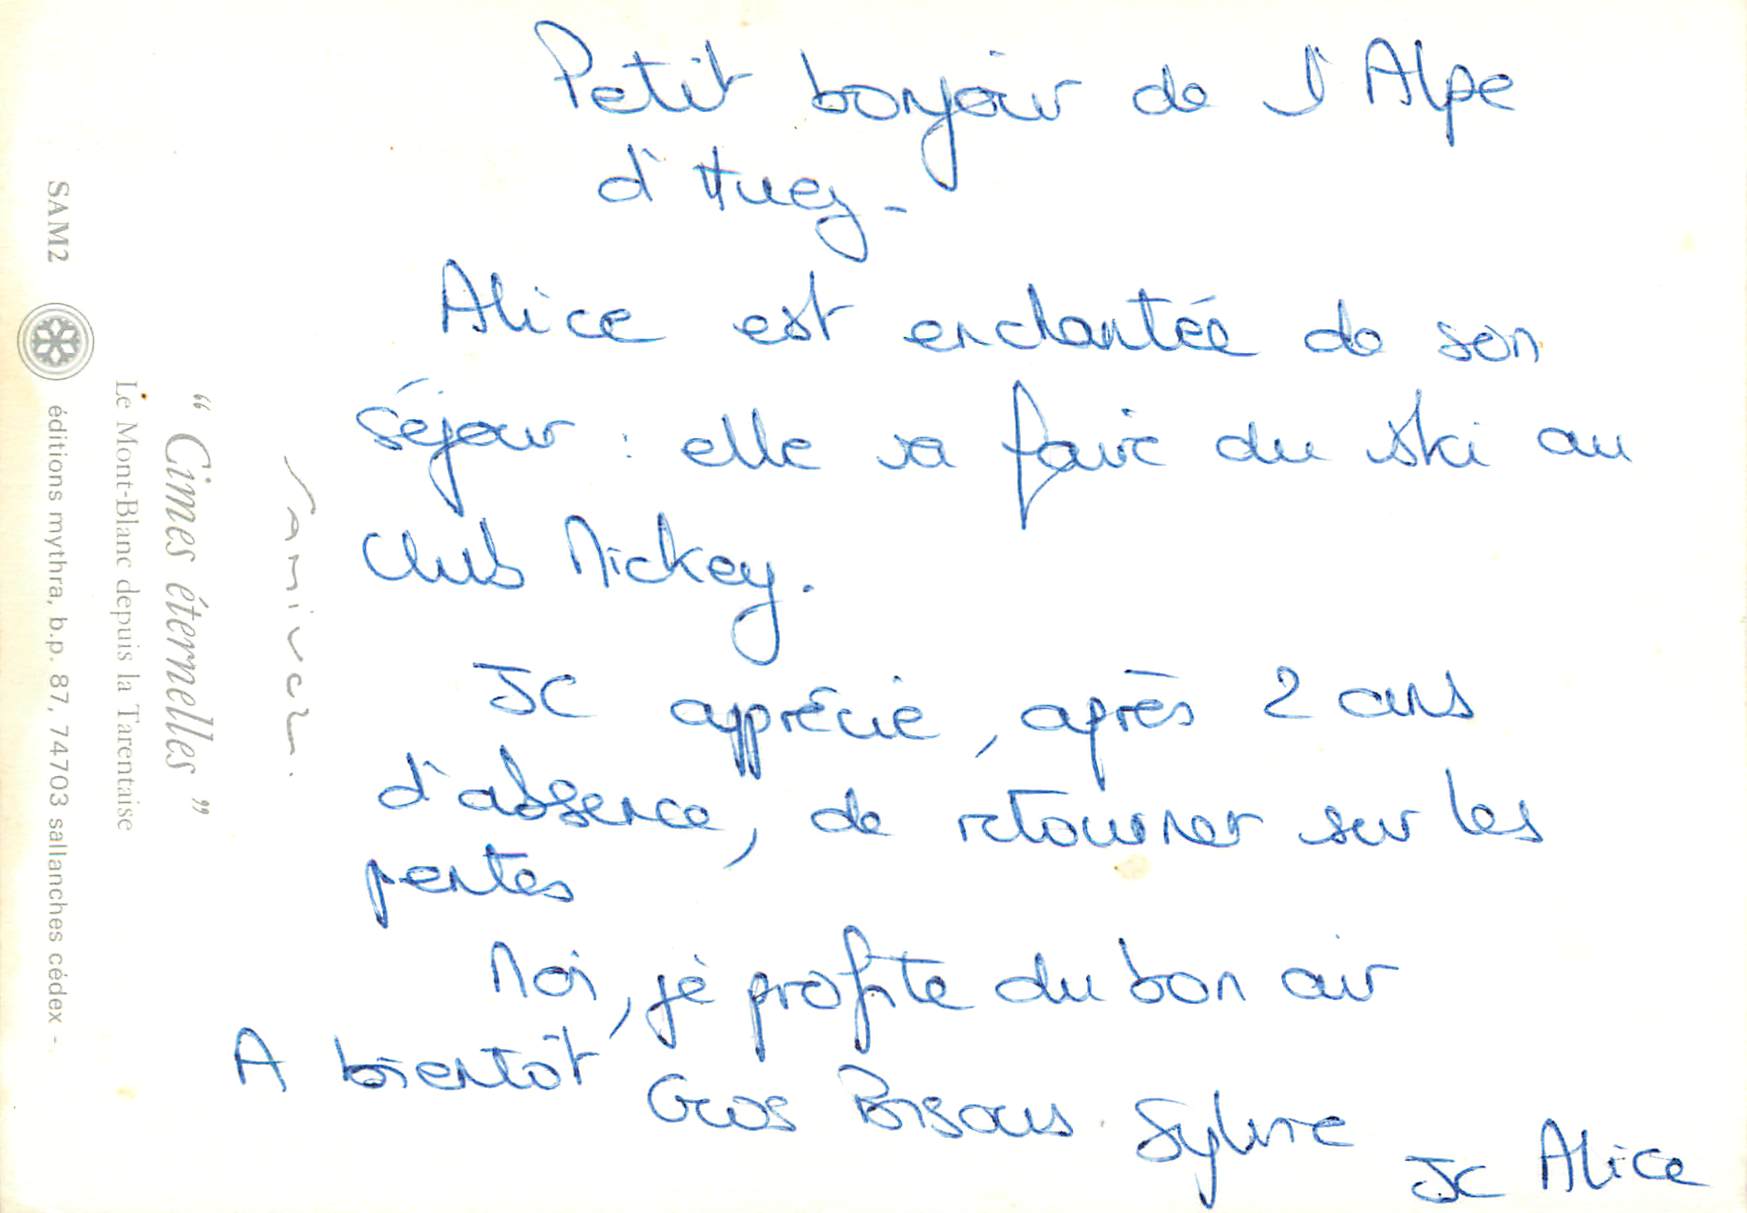 Petit bonjour de l'Alpe
d'Huez -
Alice est enchantée de son
séjour : elle va faire du ski au
Club Mickey.
JC apprécie, après 2 ans
d'absence, de retourner sur les
pentes
Moi, je profite du bon air
A bientôt
Gros Bisous. Sylvie
JC Alice
“ Cimes éternelles ”
Le Mont-Blanc depuis la Tarentaise
SAM2 éditions mythra, b.p. 87, 74703 sallanches cédex -